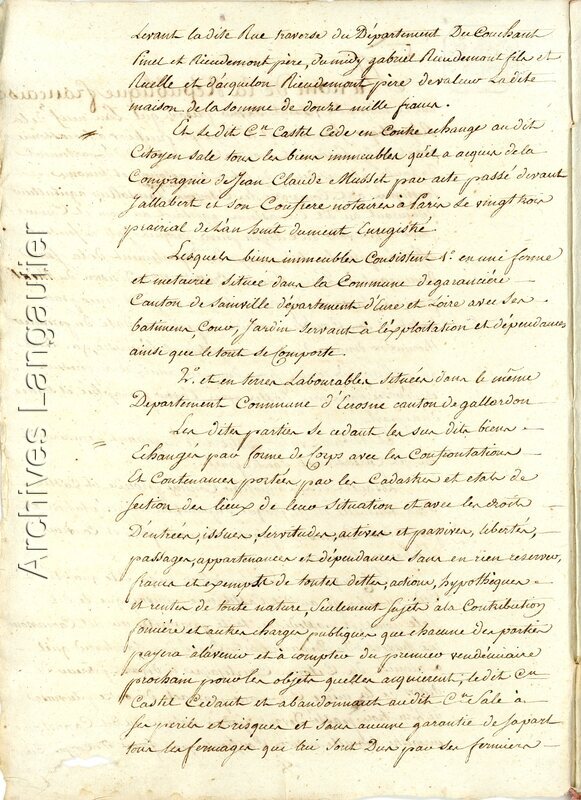 Levant la dite Rue traverse du Département Du Couchant
Pinel et Rieudemont père, du midy gabriel Rieudemont fils et
Ruelle et d'aquilon Rieudemont père de valeur La dite
maison de la somme de douze mille francs.
Et Le dit Cn Castel Cede en Contre echange au dit
Citoyen sale tous les biens immeubles qu'el a acquis de la
Compagnie de Jean Claude Musset par acte passé devant
Jallabert et son Confrere notaires à Paris le vingt trois
prairial de l'an huit dument Enregistré.
Lesquels biens immeubles Consistent 1° en une ferme
et metairie située dans la Commune de garancière
Canton de sainville département d'Eure et Loire avec ses
batimens, Cour, Jardin servant à l'exploitation et dépendances
ainsi que le tout se Comporte.
2° et en terres Labourables situées dans le même
Departement Commune d'Ecrosne canton de gallardon
Les dites parties se cedant les sus dits biens
Echangés par forme de Corps avec les Confrontations
Et Contenances portées par les Cadastres et etats de
section des lieux de leur situation et avec les droits
D'entrées, issues, servitudes, actives et passives, libertés,
passages, appartenances et dépendances sans en rien reserver,
francs et exempts de toutes dettes, actions, hypothèques
et rentes de toute nature, seulement sujets à la Contribution
foncière et autres charges publiques que chacune des parties
payera à l'avenir et à compter du premier vendémiaire
prochain pour les objets quelles acquierent, le dit Cn
Castel Cedant et abandonnant au dit Cn Sale à
ses périls et risques et sans aucune garantie de sa part
tous les fermages qui lui sont Dus par ses fermiers
Archives Langautier